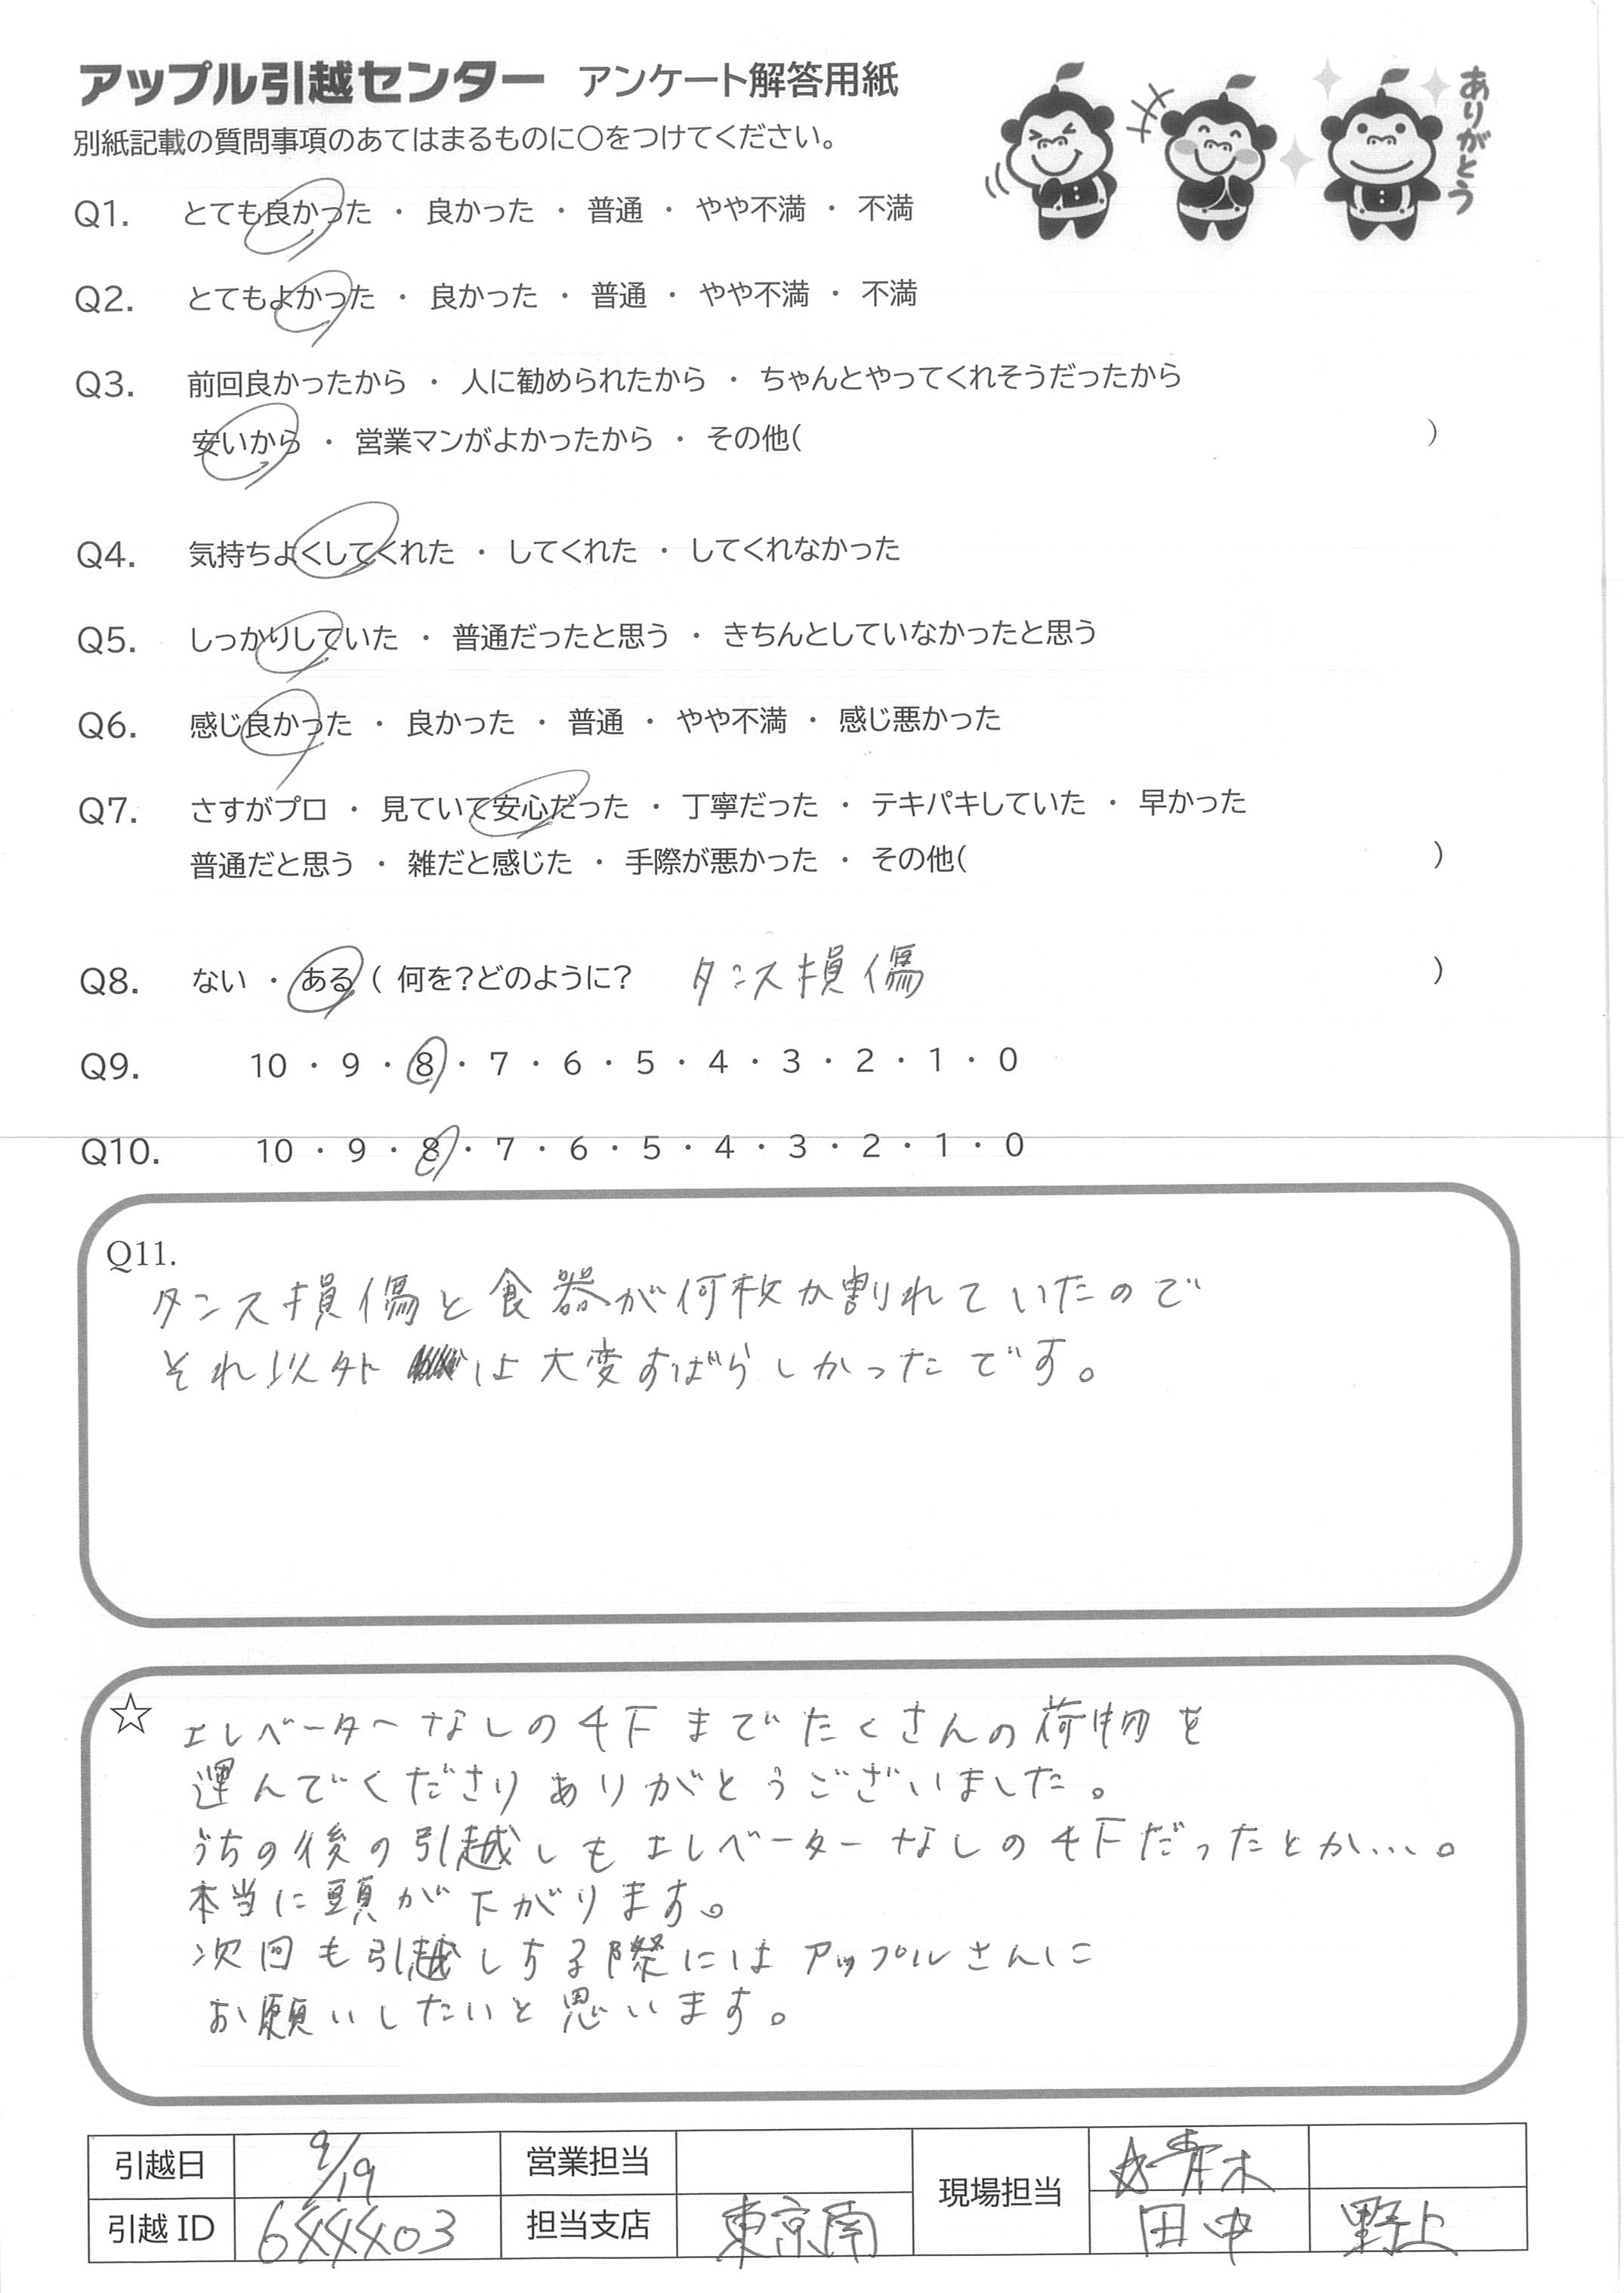 アップル引越センター アンケート解答用紙
別紙記載の質問事項のあてはまるものに○をつけてください。
ありがとう
Q1. とても良かった ・ 良かった ・ 普通 ・ やや不満 ・ 不満
Q2. とてもよかった ・ 良かった ・ 普通 ・ やや不満 ・ 不満
Q3. 前回良かったから ・ 人に勧められたから ・ ちゃんとやってくれそうだったから
安いから ・ 営業マンがよかったから ・ その他( )
Q4. 気持ちよくしてくれた ・ してくれた ・ してくれなかった
Q5. しっかりしていた ・ 普通だったと思う ・ きちんとしていなかったと思う
Q6. 感じ良かった ・ 良かった ・ 普通 ・ やや不満 ・ 感じ悪かった
Q7. さすがプロ ・ 見ていて安心だった ・ 丁寧だった ・ テキパキしていた ・ 早かった
普通だと思う ・ 雑だと感じた ・ 手際が悪かった ・ その他( )
Q8. ない ・ ある ( 何を?どのように? タンス損傷 )
Q9. 10 ・ 9 ・ 8 ・ 7 ・ 6 ・ 5 ・ 4 ・ 3 ・ 2 ・ 1 ・ 0
Q10. 10 ・ 9 ・ 8 ・ 7 ・ 6 ・ 5 ・ 4 ・ 3 ・ 2 ・ 1 ・ 0
Q11.
タンス損傷と食器が何枚か割れていたので
それ以外は大変すばらしかったです。
☆ エレベーターなしの4Fまでたくさんの荷物を
運んでくださりありがとうございました。
うちの後の引越しもエレベーターなしの4Fだったとか…。
本当に頭が下がります。
次回も引越しする際にはアップルさんに
お願いしたいと思います。
引越日 9/19 営業担当 現場担当 ☆青木
引越ID 6444403 担当支店 東京南 田中 野上